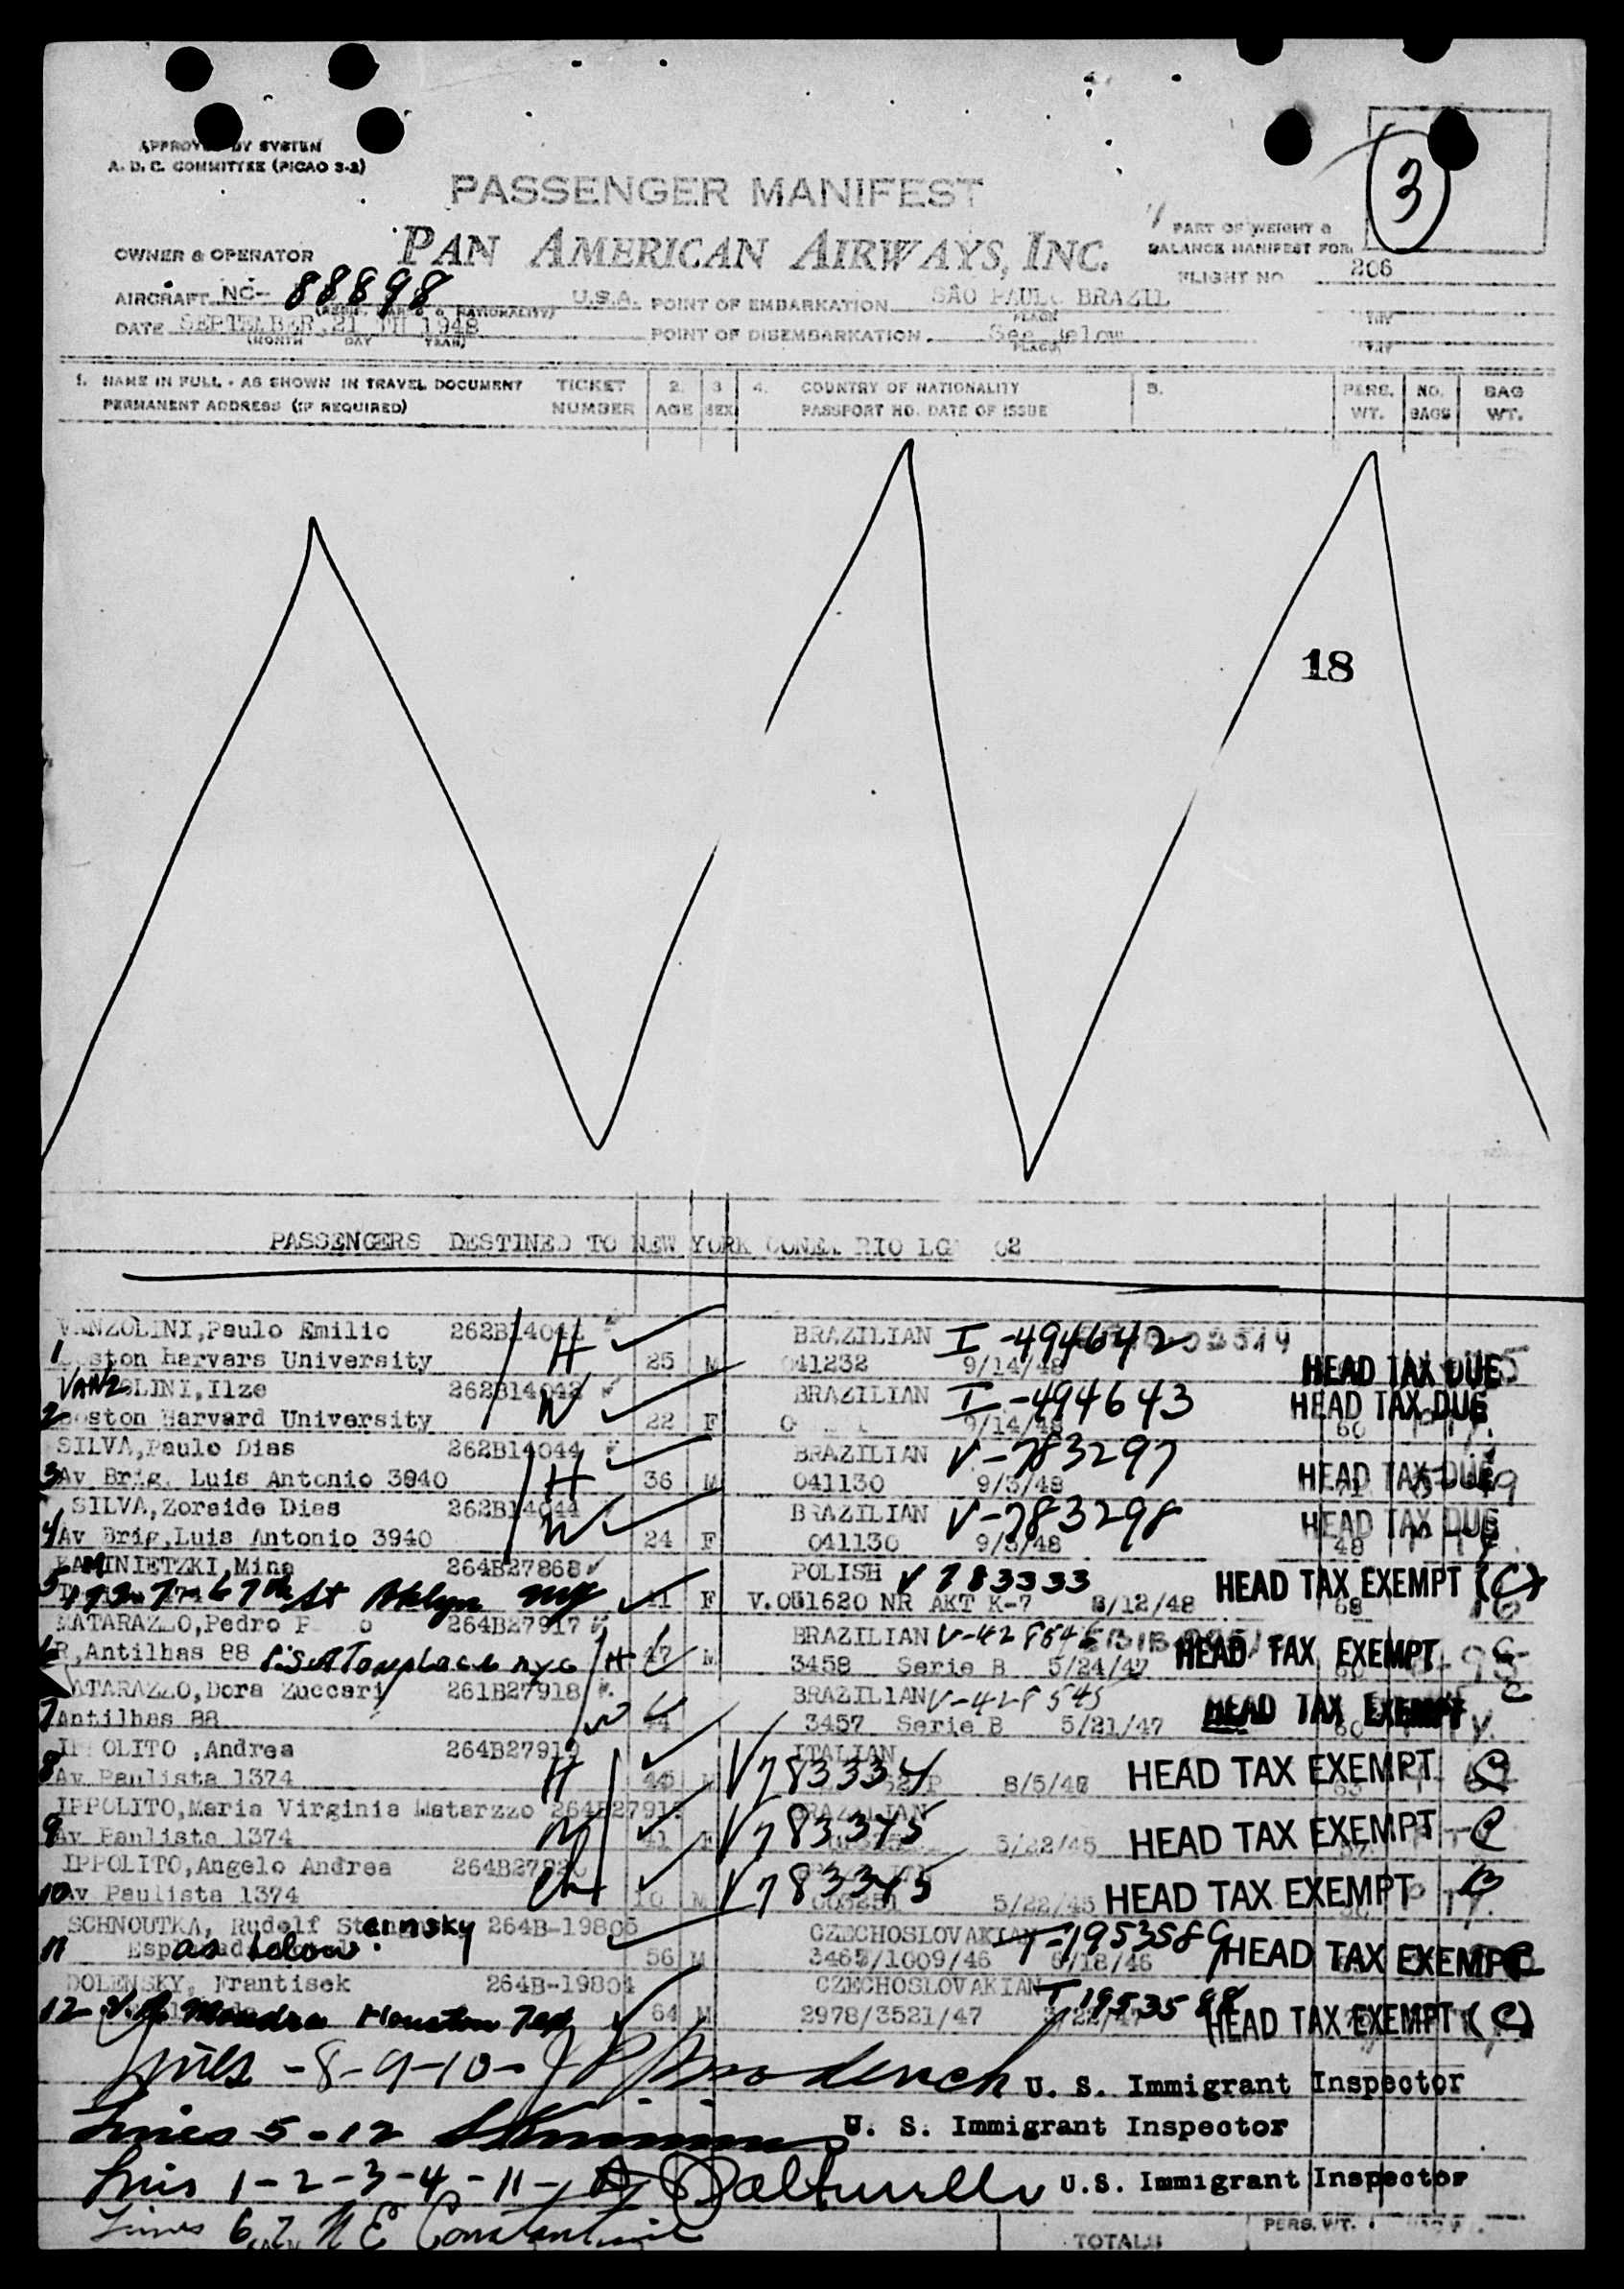 APPROVED BY SYSTEM
A. D. C. COMMITTEE (PICAO 3-2)
3
PASSENGER MANIFEST
PART OF WEIGHT &
BALANCE MANIFEST FOR
OWNER & OPERATOR PAN AMERICAN AIRWAYS, INC.
FLIGHT NO 206
AIRCRAFT NC- 88898 U.S.A. POINT OF EMBARKATION SÃO PAULO BRAZIL
DATE SEPTEMBER 21 TH 1948 POINT OF DISEMBARKATION See Below
(MONTH DAY YEAR) PLACE
1. NAME IN FULL - AS SHOWN IN TRAVEL DOCUMENT TICKET 2. 3 4. COUNTRY OF NATIONALITY 5. PERS. NO. BAG
PERMANENT ADDRESS (IF REQUIRED) NUMBER AGE SEX PASSPORT NO. DATE OF ISSUE WT. BAGS WT.
18
PASSENGERS DESTINED TO NEW YORK CONEX RIO LG 02
VANZOLINI,Paulo Emilio BRAZILIAN I-494642
1 Boston Harvars University H 25 M 041232 9/14/48 HEAD TAX DUE
VANZOLINI,Ilze 262B14043 BRAZILIAN I-494643
2 Boston Harvard University W 22 F 9/14/48 HEAD TAX DUE
SILVA,Paulo Dias 262B14044 BRAZILIAN V-783297
3 Av Brig. Luis Antonio 3940 H 36 M 041130 9/3/48 HEAD TAX DUE
SILVA,Zoraide Dias 262B14044 BRAZILIAN V-783298
4 Av Brig,Luis Antonio 3940 W 24 F 041130 9/3/48 48 HEAD TAX DUE
KAMINIETZKI,Mina 264B27868 POLISH V 783333
5 67th St Bklyn NY F V.051620 NR AKT K-7 8/12/48 68 HEAD TAX EXEMPT (C)
MATARAZZO,Pedro 264B27917 BRAZILIAN
6 R,Antilhas 88 nyc H 47 M 3458 Serie B 5/24/47 HEAD TAX EXEMPT C
MATARAZZO,Dora Zuccari 261B27918 BRAZILIAN V-428545
7 Antilhas 88 W 44 3457 Serie B 5/21/47 60 HEAD TAX EXEMPT C
IPPOLITO ,Andrea 264B27919 ITALIAN V783334
8 Av Paulista 1374 H 8/5/48 HEAD TAX EXEMPT C
IPPOLITO,Maria Virginia Matarzzo BRAZILIAN V783345
9 Av Paulista 1374 W 41 F 5/22/45 HEAD TAX EXEMPT C
IPPOLITO,Angelo Andrea V783345
10 Av Paulista 1374 Ch 10 M 5/22/45 HEAD TAX EXEMPT
SCHNOUTKA, Rudolf 264B-19805 CZECHOSLOVAKIAN T-1953589
11 as below. 56 M 3465/1009/46 6/18/46 HEAD TAX EXEMPT C
DOLENSKY, Frantisek 264B-19804 CZECHOSLOVAKIAN T 1953588
12 Houston Tex 64 M 2978/3521/47 HEAD TAX EXEMPT (C)
Lines -8-9-10- U. S. Immigrant Inspector
Lines 5-12 U. S. Immigrant Inspector
Lines 1-2-3-4-11- U.S. Immigrant Inspector
Lines 6, 7 N E Constantine
TOTALS PERS. WT.